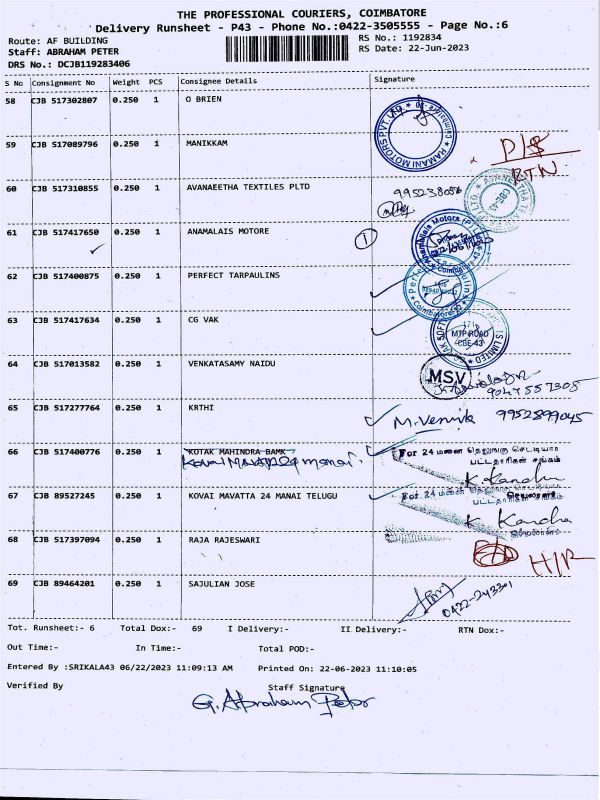 THE PROFESSIONAL COURIERS, COIMBATORE
Delivery Runsheet - P43 - Phone No.:0422-3505555 - Page No.:6
Route: AF BUILDING
RS No.: 1192834
Staff: ABRAHAM PETER
RS Date: 22-Jun-2023
DRS No.: DCJB119283406
S No Consignment No Weight PCS Consignee Details Signature
58 CJB 517302807 0.250 1 O BRIEN
HAMANI MOTORS PVT. LTD.
59 CJB 517089796 0.250 1 MANIKKAM
D/S
RTN
60 CJB 517310855 0.250 1 AVANAEETHA TEXTILES PLTD
CBE-43
61 CJB 517417650 0.250 1 ANAMALAIS MOTORE
1
Anamalais Motors (P) Ltd
62 CJB 517400875 0.250 1 PERFECT TARPAULINS
63 CJB 517417634 0.250 1 CG VAK
MTP ROAD
CBE-43
64 CJB 517013582 0.250 1 VENKATASAMY NAIDU
MSV
9047557305
65 CJB 517277764 0.250 1 KRTHI
9952899045
66 CJB 517400776 0.250 1 KOTAK MAHINDRA BAMK
Kovai MAVATTA 24 manai.
For 24 மனை தெலுங்கு செட்டியார்
பட்டதாரிகள் சங்கம்
67 CJB 89527245 0.250 1 KOVAI MAVATTA 24 MANAI TELUGU
For 24 மனை தெலுங்கு செட்டியார்
பட்டதாரிகள் சங்கம்
68 CJB 517397094 0.250 1 RAJA RAJESWARI
69 CJB 89464201 0.250 1 SAJULIAN JOSE
Tot. Runsheet:- 6 Total Dox:- 69 I Delivery:- II Delivery:- RTN Dox:-
Out Time:- In Time:- Total POD:-
Entered By :SRIKALA43 06/22/2023 11:09:13 AM Printed On: 22-06-2023 11:10:05
Verified By Staff Signature
G. Abraham Peter